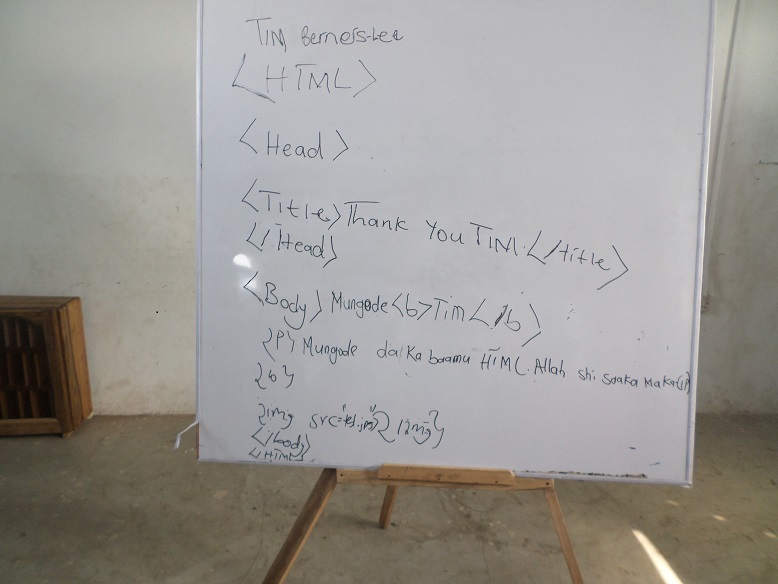 Tim Berners-Lee
<HTML>
<Head>
<Title>Thank You TIM.</title>
</Head>
<Body> Mungode <b>Tim </b>
{P} Mungode da Ka baamu HTML. Allah shi saaka maka
{b}
{img src= {/img}
</body>
</HTML>